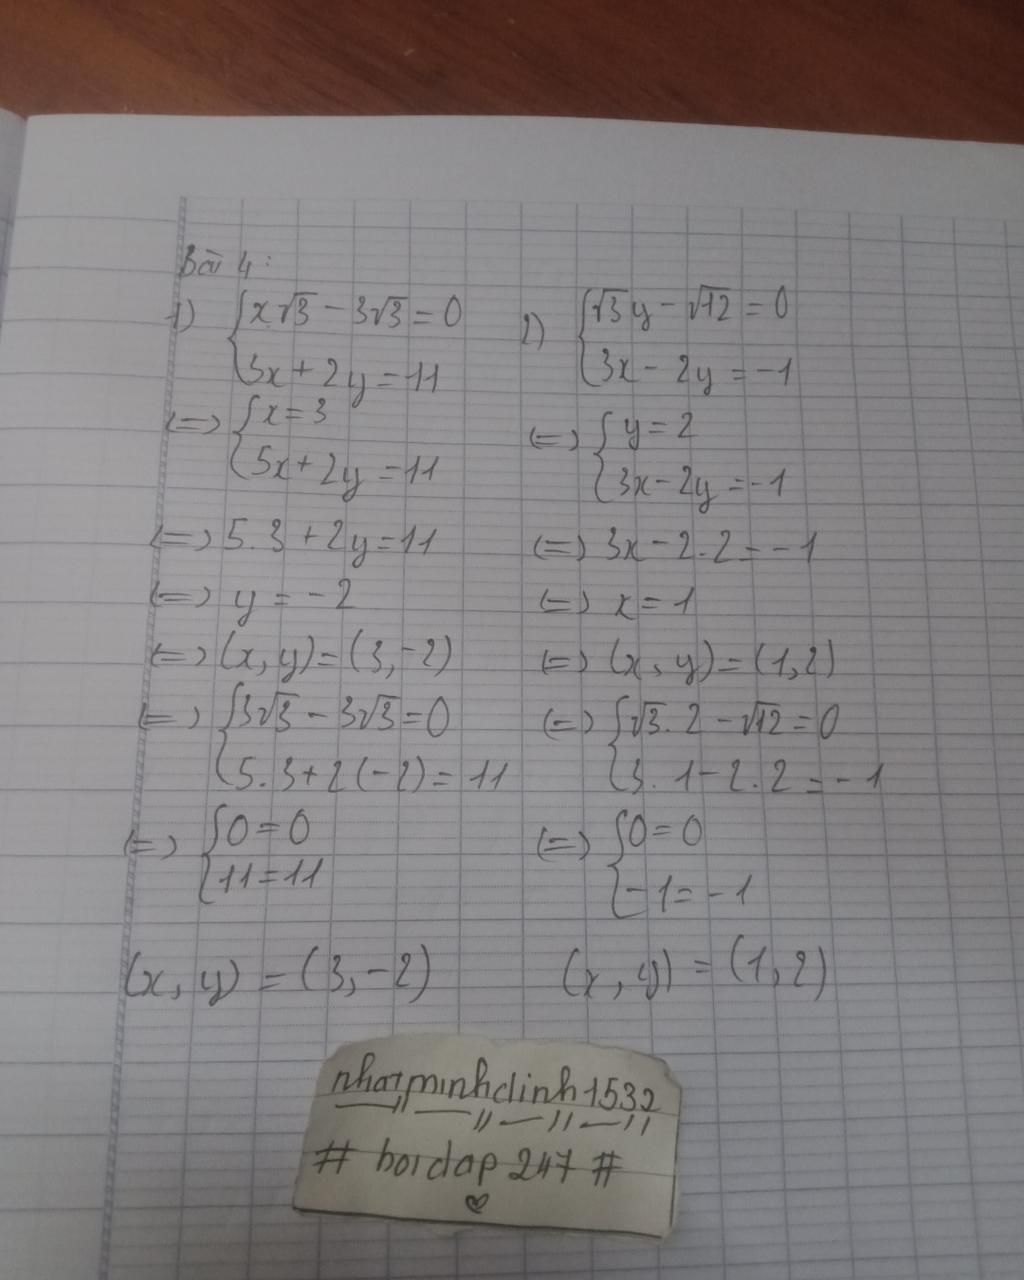 Bài 4:
1) { x√3 - 3√3 = 0
5x + 2y = 11
<=> { x = 3
5x + 2y = 11
<=> 5.3 + 2y = 11
<=> y = -2
<=> (x, y) = (3, -2)
<=> { 3√3 - 3√3 = 0
5.3 + 2(-2) = 11
<=> { 0 = 0
11 = 11
(x, y) = (3, -2)
2) { √3y - √12 = 0
3x - 2y = -1
<=> { y = 2
3x - 2y = -1
<=> 3x - 2.2 = -1
<=> x = 1
<=> (x, y) = (1, 2)
<=> { √3.2 - √12 = 0
3.1 - 2.2 = -1
<=> { 0 = 0
-1 = -1
(x, y) = (1, 2)
nhatminhdinh1532
# hoidap 247 #
♡